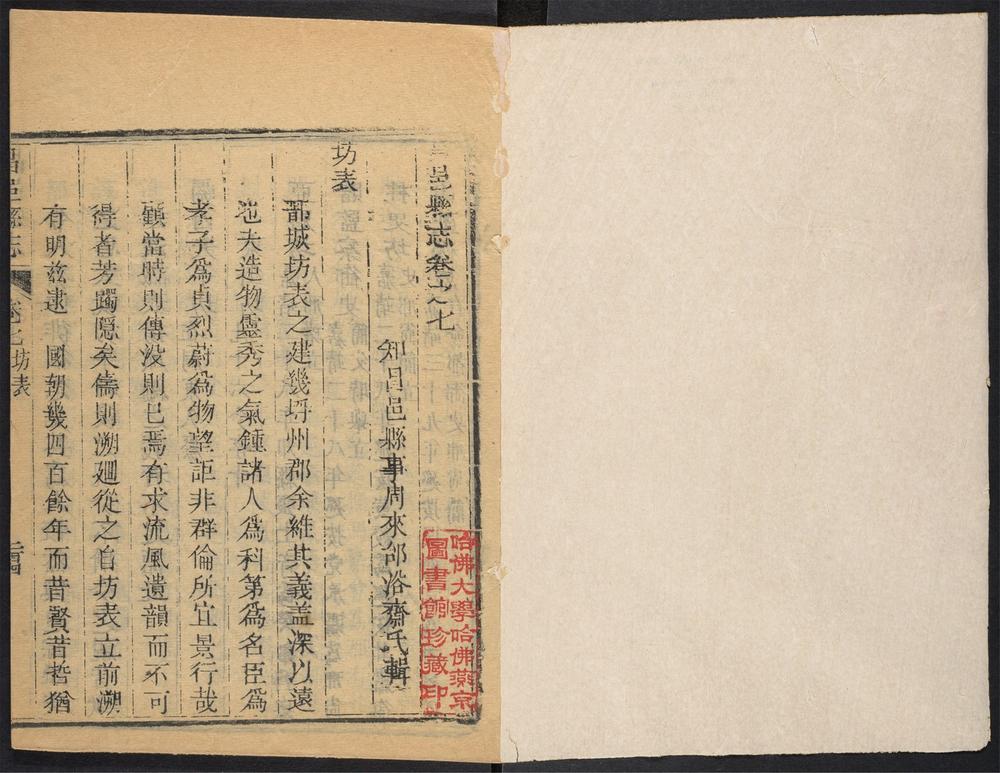 邑縣志卷之七
知昌邑縣事周來邰浴齋氏輯
坊表
都城坊表之建幾埒州郡余維其義盖深以遠
也夫造物靈秀之氣鍾諸人爲科第爲名臣爲
孝子爲貞烈蔚爲物望詎非群倫所宜景行哉
顧當時則傳没則已焉有求流風遺韻而不可
得者芳躅隱矣儔則溯廻從之自坊表立前溯
有明兹逮 國朝幾四百餘年而昔賢昔哲猶
昌邑縣志 卷七坊表
哈佛大學哈佛燕京
圖書館珍藏印